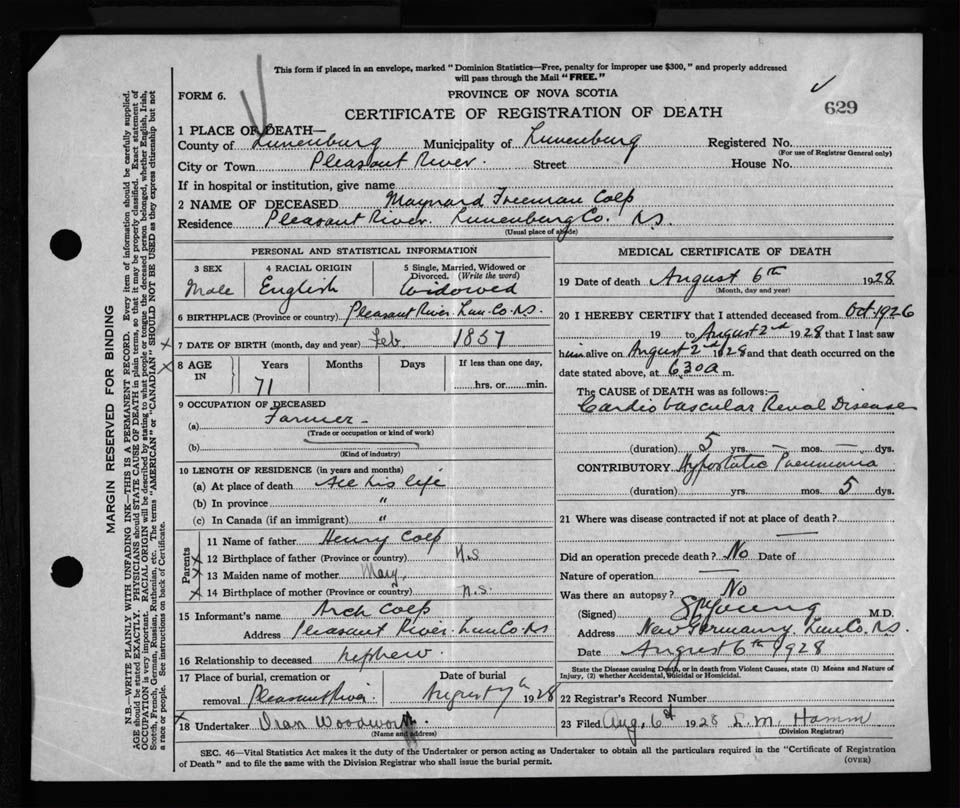 This form if placed in an envelope, marked "Dominion Statistics—Free, penalty for improper use $300," and properly addressed
will pass through the Mail "FREE."
FORM 6.
PROVINCE OF NOVA SCOTIA
629
CERTIFICATE OF REGISTRATION OF DEATH
1 PLACE OF DEATH—
County of Lunenburg Municipality of Lunenburg Registered No.
(For use of Registrar General only)
City or Town Pleasant River. Street House No.
If in hospital or institution, give name
2 NAME OF DECEASED Maynard Freeman Colp
Residence Pleasant River. Lunenburg Co. N.S.
(Usual place of abode)
PERSONAL AND STATISTICAL INFORMATION
3 SEX 4 RACIAL ORIGIN 5 Single, Married, Widowed or
Divorced. (Write the word)
Male English Widowed
6 BIRTHPLACE (Province or country) Pleasant River. Lun. Co. N.S.
7 DATE OF BIRTH (month, day and year) Feb. 1857
8 AGE IN Years Months Days If less than one day,
71 hrs. or min.
9 OCCUPATION OF DECEASED
(a) Farmer
(Trade or occupation or kind of work)
(b)
(Kind of industry)
10 LENGTH OF RESIDENCE (in years and months)
(a) At place of death All his life
(b) In province "
(c) In Canada (if an immigrant) "
Parents
11 Name of father Henry Colp
12 Birthplace of father (Province or country) N.S
13 Maiden name of mother Mary,
14 Birthplace of mother (Province or country) n.s.
15 Informant's name Arch Colp
Address Pleasant River. Lun. Co. N.S
16 Relationship to deceased nephew.
17 Place of burial, cremation or Date of burial
removal Pleasant River. August 7th 1928
18 Undertaker Woodworth.
(Name and address)
MEDICAL CERTIFICATE OF DEATH
19 Date of death August 6th 1928
(Month, day and year)
20 I HEREBY CERTIFY that I attended deceased from Oct. 1926
19 to August 2nd 1928 that I last saw
him alive on August 2nd 1928 and that death occurred on the
date stated above, at 6.30 a m.
The CAUSE of DEATH was as follows:—
Cardio Vascular Renal Disease
(duration) 5 yrs. — mos. — dys.
CONTRIBUTORY Hypostatic Pneumonia
(duration) yrs. mos. 5 dys.
21 Where was disease contracted if not at place of death?
Did an operation precede death? No Date of
Nature of operation
Was there an autopsy? No
(Signed) Young M.D.
Address New Germany. Lun. Co. N.S.
Date August 6th 1928
State the Disease causing Death, or in death from Violent Causes, state (1) Means and Nature of
Injury, (2) whether Accidental, Suicidal or Homicidal.
22 Registrar's Record Number
23 Filed Aug, 6th 1928 L. M. Hamm
(Division Registrar)
SEC. 46—Vital Statistics Act makes it the duty of the Undertaker or person acting as Undertaker to obtain all the particulars required in the "Certificate of Registration
of Death" and to file the same with the Division Registrar who shall issue the burial permit. (OVER)
MARGIN RESERVED FOR BINDING
N.B.—WRITE PLAINLY WITH UNFADING INK—THIS IS A PERMANENT RECORD. Every item of information should be carefully supplied.
AGE should be stated EXACTLY. PHYSICIANS should STATE CAUSE OF DEATH in plain terms, so that it may be properly classified. Exact statement of
OCCUPATION is very important. RACIAL ORIGIN will be described by stating to what people or tongue the deceased person belonged, whether English, Irish,
Scotch, French, German, Russian, Ruthenian, etc. The terms "AMERICAN" or "CANADIAN" SHOULD NOT BE USED as they express citizenship but not
a race or people. See instructions on back of Certificate.